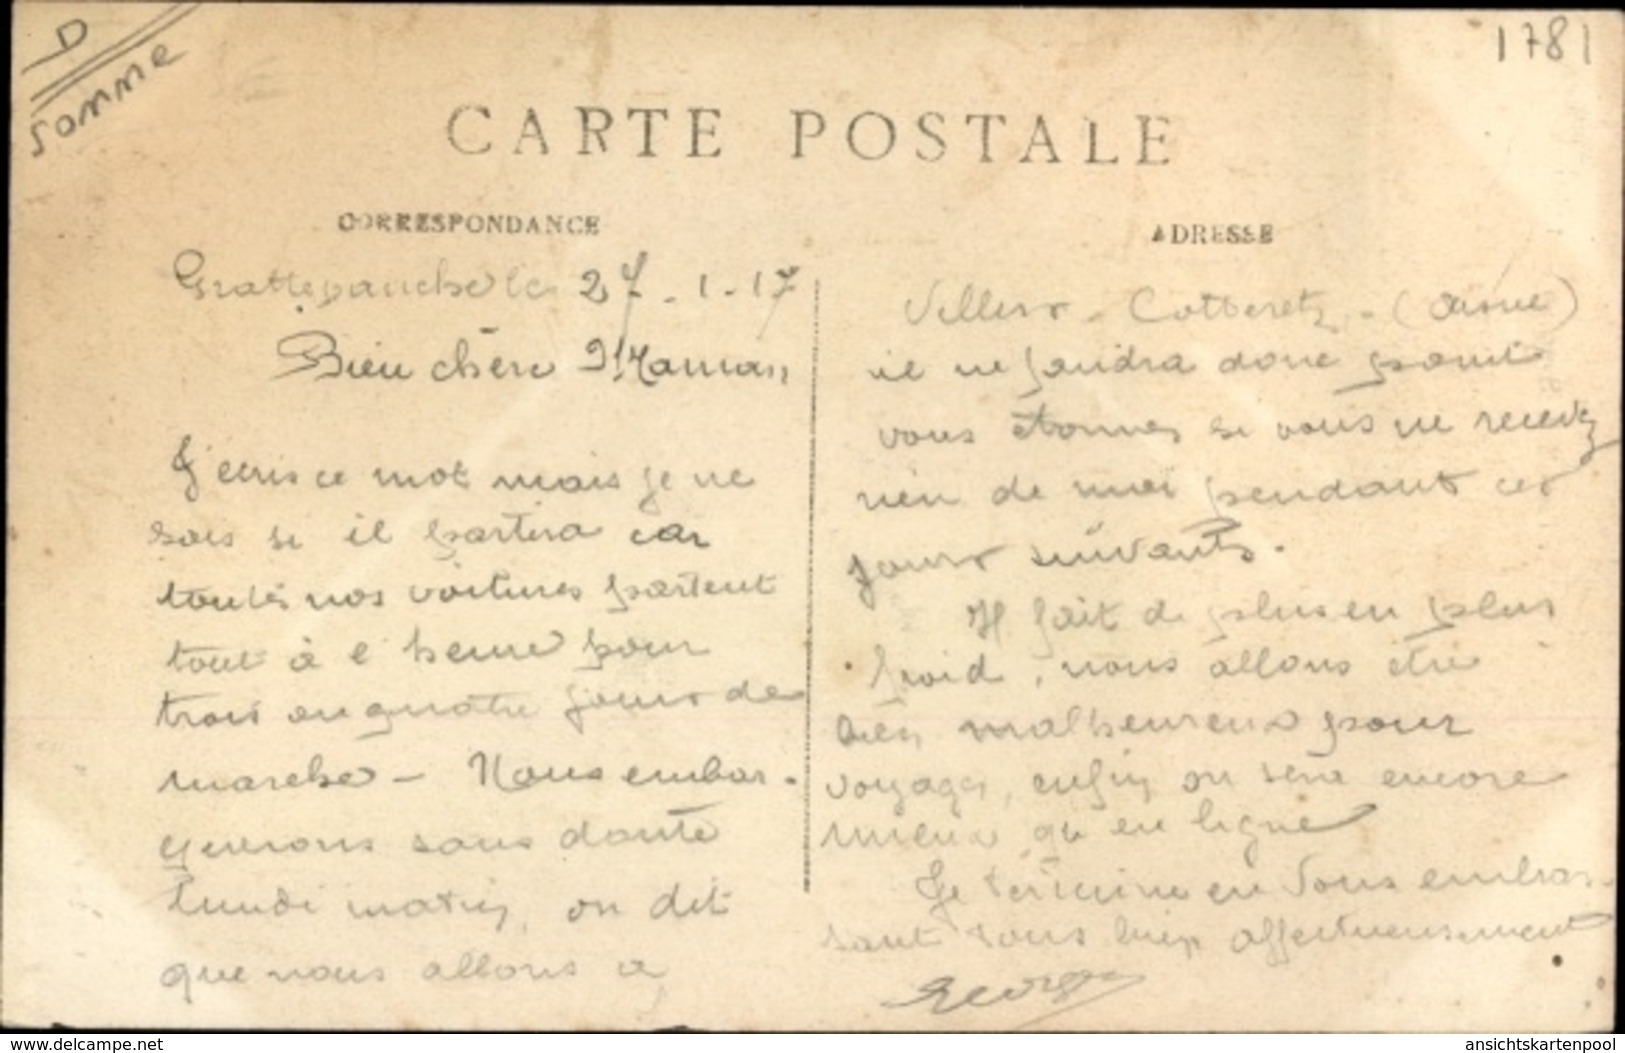 D
Somme
1781
CARTE POSTALE
CORRESPONDANCE
ADRESSE
Grattepanche le 27-1-17
Bien chère Maman
J'écris ce mot mais je ne
sais si il partira car
toutes nos voitures partent
tout à l'heure pour
trois ou quatre jours de
marche - Nous embar-
querons sans doute
lundi matin, on dit
que nous allons à
Villers-Cotterets - (Aisne)
il ne faudra donc point
vous étonner si vous ne recevez
rien de moi pendant ces
jours suivants.
Il fait de plus en plus
froid, nous allons être
bien malheureux pour
voyager, enfin on sera encore
mieux qu'en ligne
Je termine en vous embras-
sant tous bien affectueusement
Georges
www.delcampe.net
ansichtskartenpool